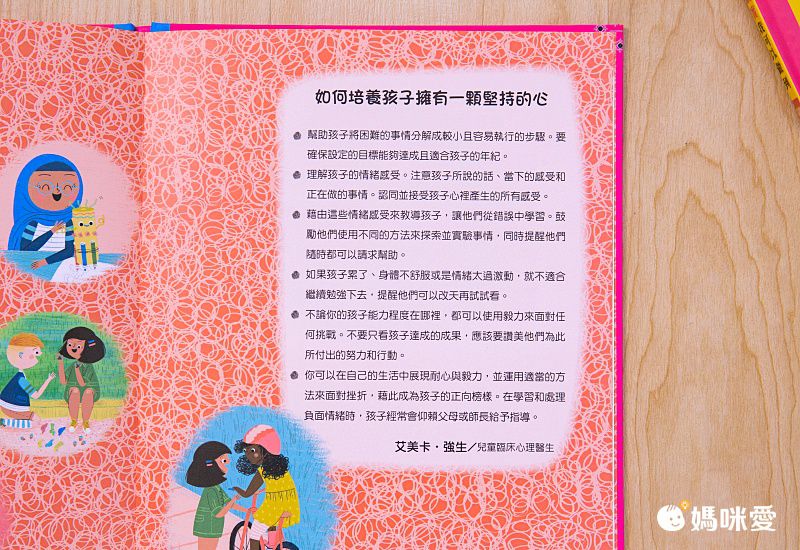 如何培養孩子擁有一顆堅持的心
幫助孩子將困難的事情分解成較小且容易執行的步驟。要
確保設定的目標能夠達成且適合孩子的年紀。
理解孩子的情緒感受。注意孩子所說的話、當下的感受和
正在做的事情。認同並接受孩子心裡產生的所有感受。
藉由這些情緒感受來教導孩子，讓他們從錯誤中學習。鼓
勵他們使用不同的方法來探索並實驗事情，同時提醒他們
隨時都可以請求幫助。
如果孩子累了、身體不舒服或是情緒太過激動，就不適合
繼續勉強下去，提醒他們可以改天再試試看。
不論你的孩子能力程度在哪裡，都可以使用毅力來面對任
何挑戰。不要只看孩子達成的成果，應該要讚美他們為此
所付出的努力和行動。
你可以在自己的生活中展現耐心與毅力，並運用適當的方
法來面對挫折，藉此成為孩子的正向榜樣。在學習和處理
負面情緒時，孩子經常會仰賴父母或師長給予指導。
艾美卡·強生／兒童臨床心理醫生
媽咪愛